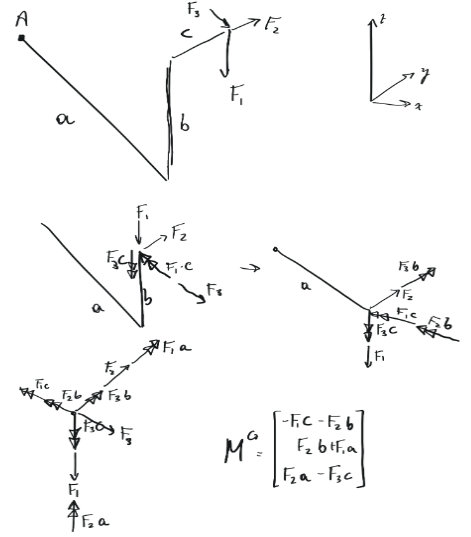 A
a
b
c
F₃
F₂
F₁
z
y
x
F₁
F₂
F₃c
F₁·c
F₃
a
b
→
a
F₃b
F₂
F₁c
F₂b
F₃c
F₁
F₁a
F₂
F₁c
F₂b
F₃b
F₃c
F₃
F₁
F₂a
-F₁c - F₂b
F₂b+F₁a
F₂a - F₃c